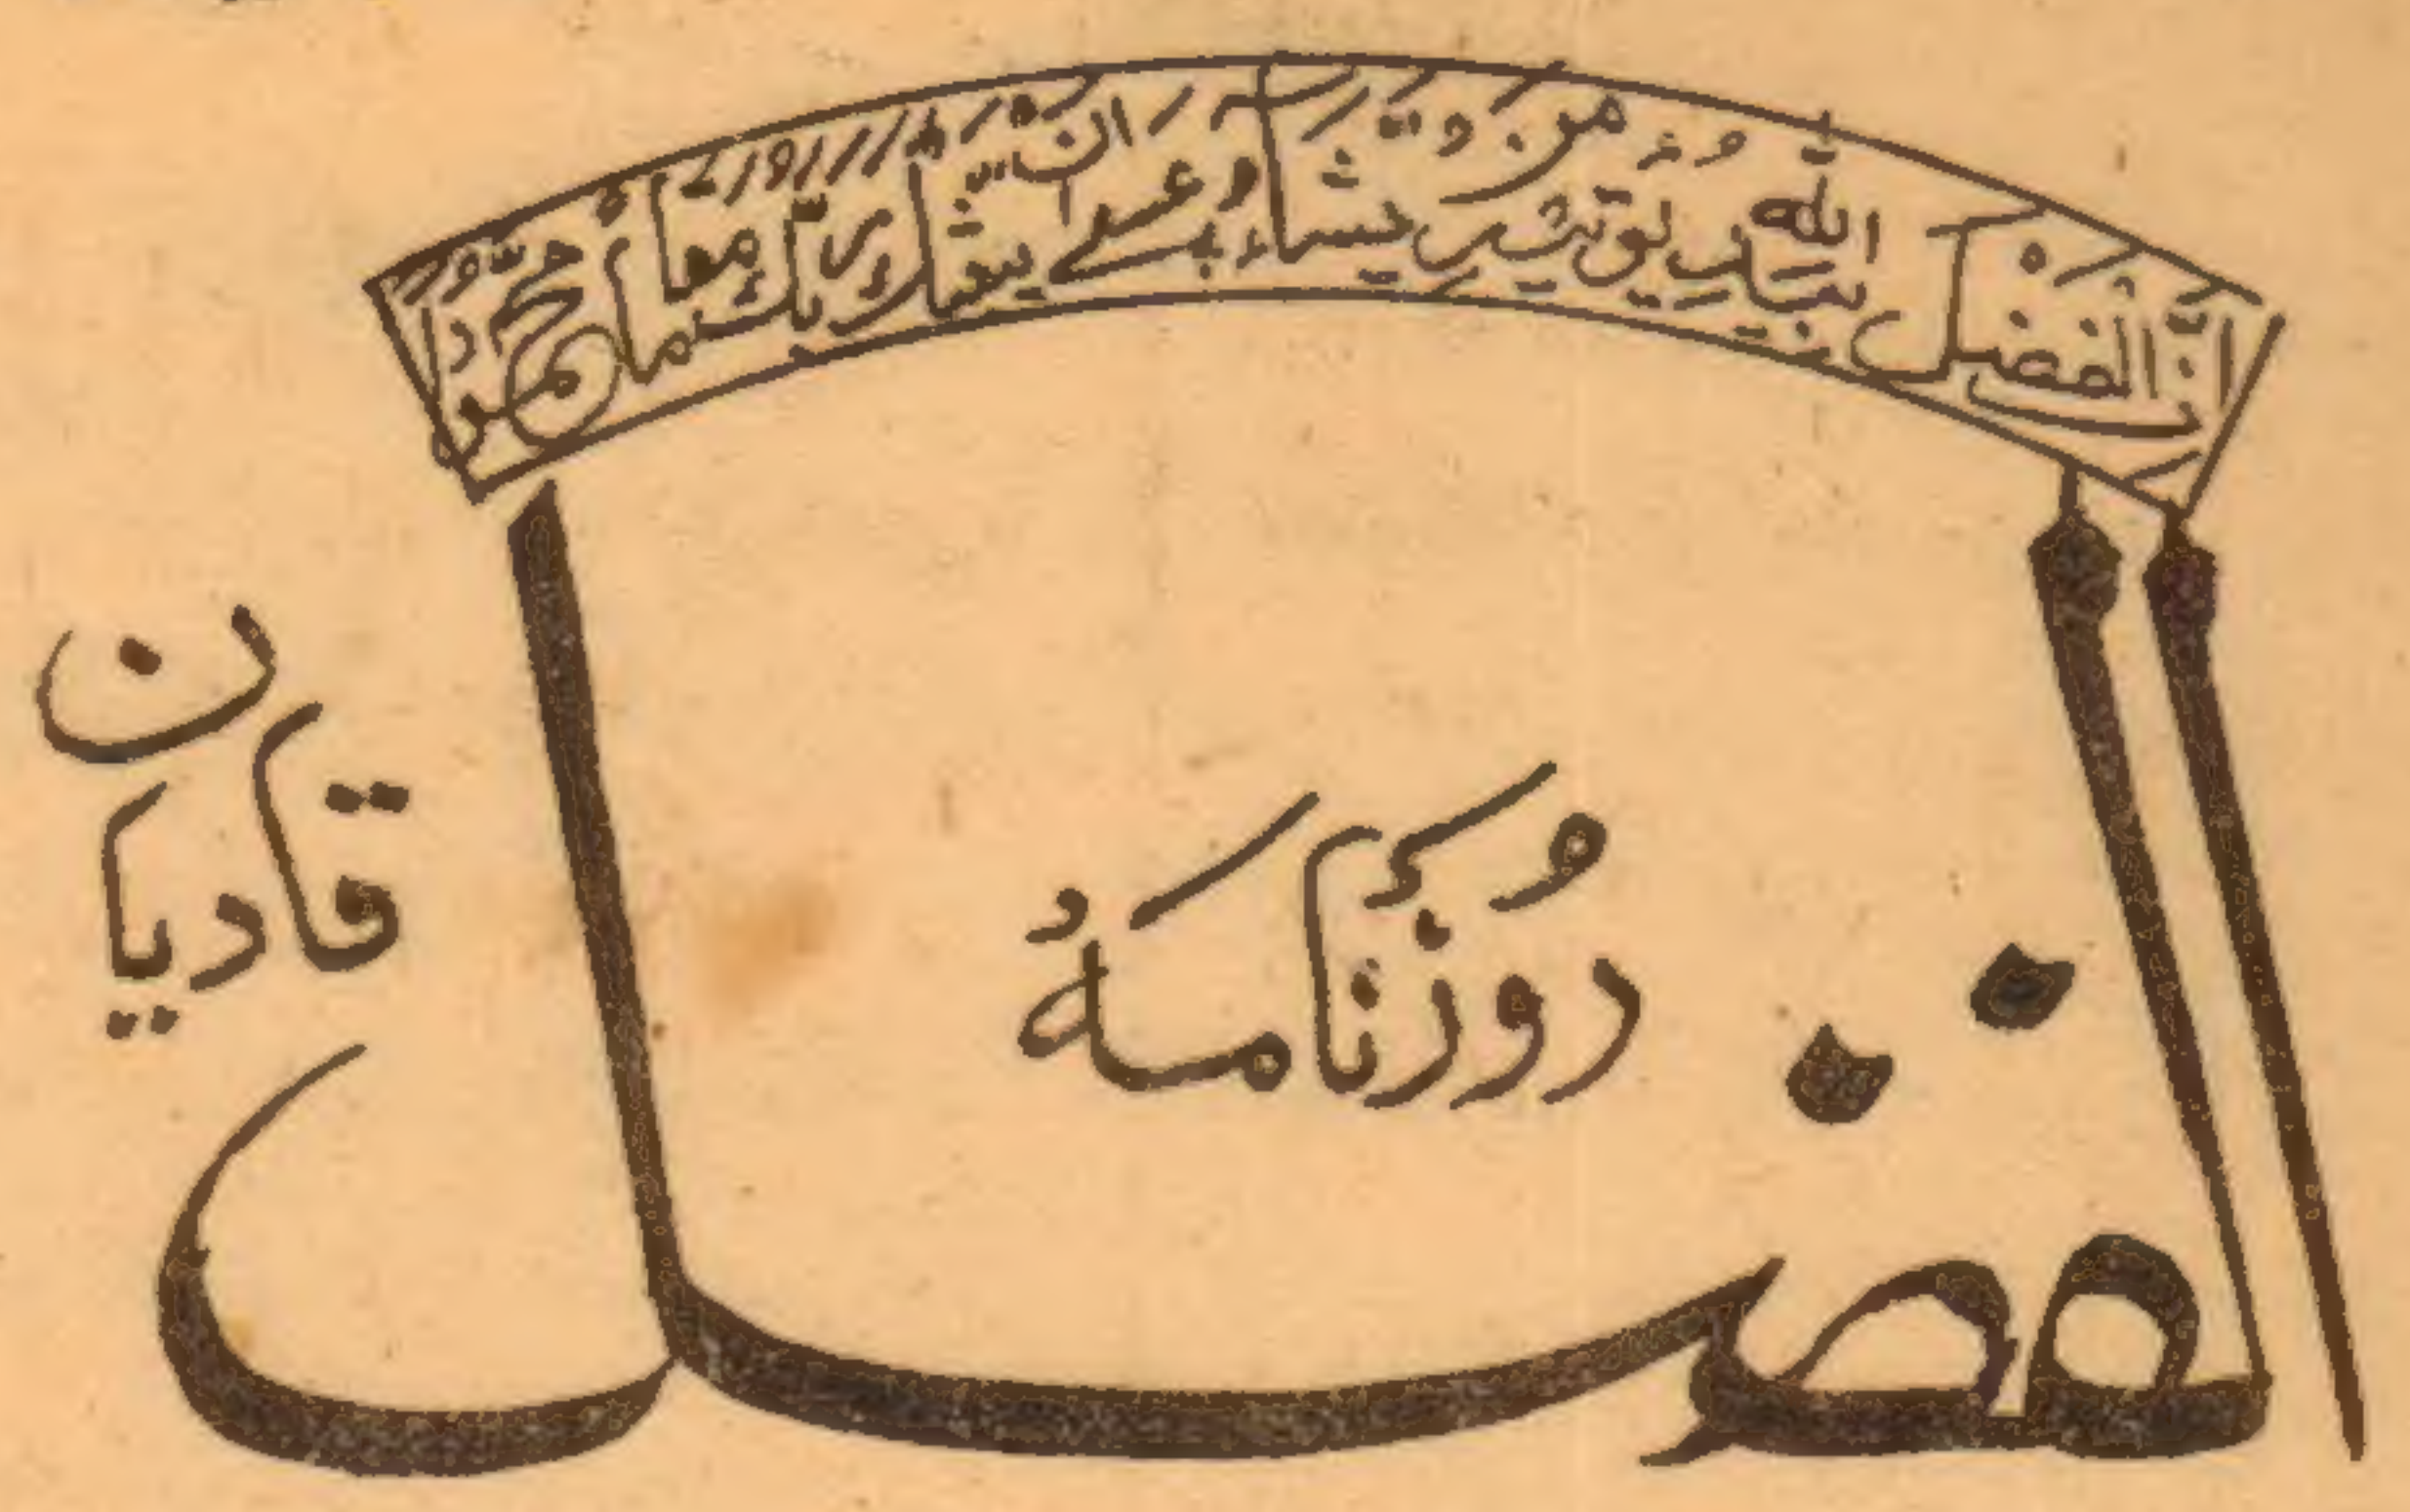 ان الفضل بيد الله يوتيه من يشاء عسى ان يبعثك ربك مقاما محمودا
روزنامہ
الفضل
قادیان